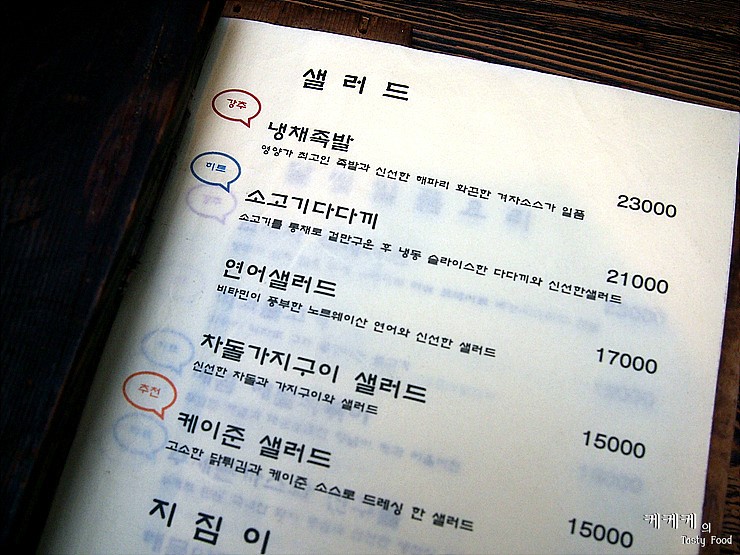 샐러드
강추
냉채족발
영양가 최고인 족발과 신선한 해파리 화끈한 겨자소스가 일품
23000
미르
소고기다다끼
소고기를 통채로 겉만구운 후 냉동 슬라이스한 다다끼와 신선한샐러드
21000
연어샐러드
비타민이 풍부한 노르웨이산 연어와 신선한 샐러드
17000
차돌가지구이 샐러드
신선한 차돌과 가지구이와 샐러드
15000
추천
케이준 샐러드
고소한 닭튀김과 케이준 소스로 드레싱 한 샐러드
15000
지짐이
케케케의
Tasty Food